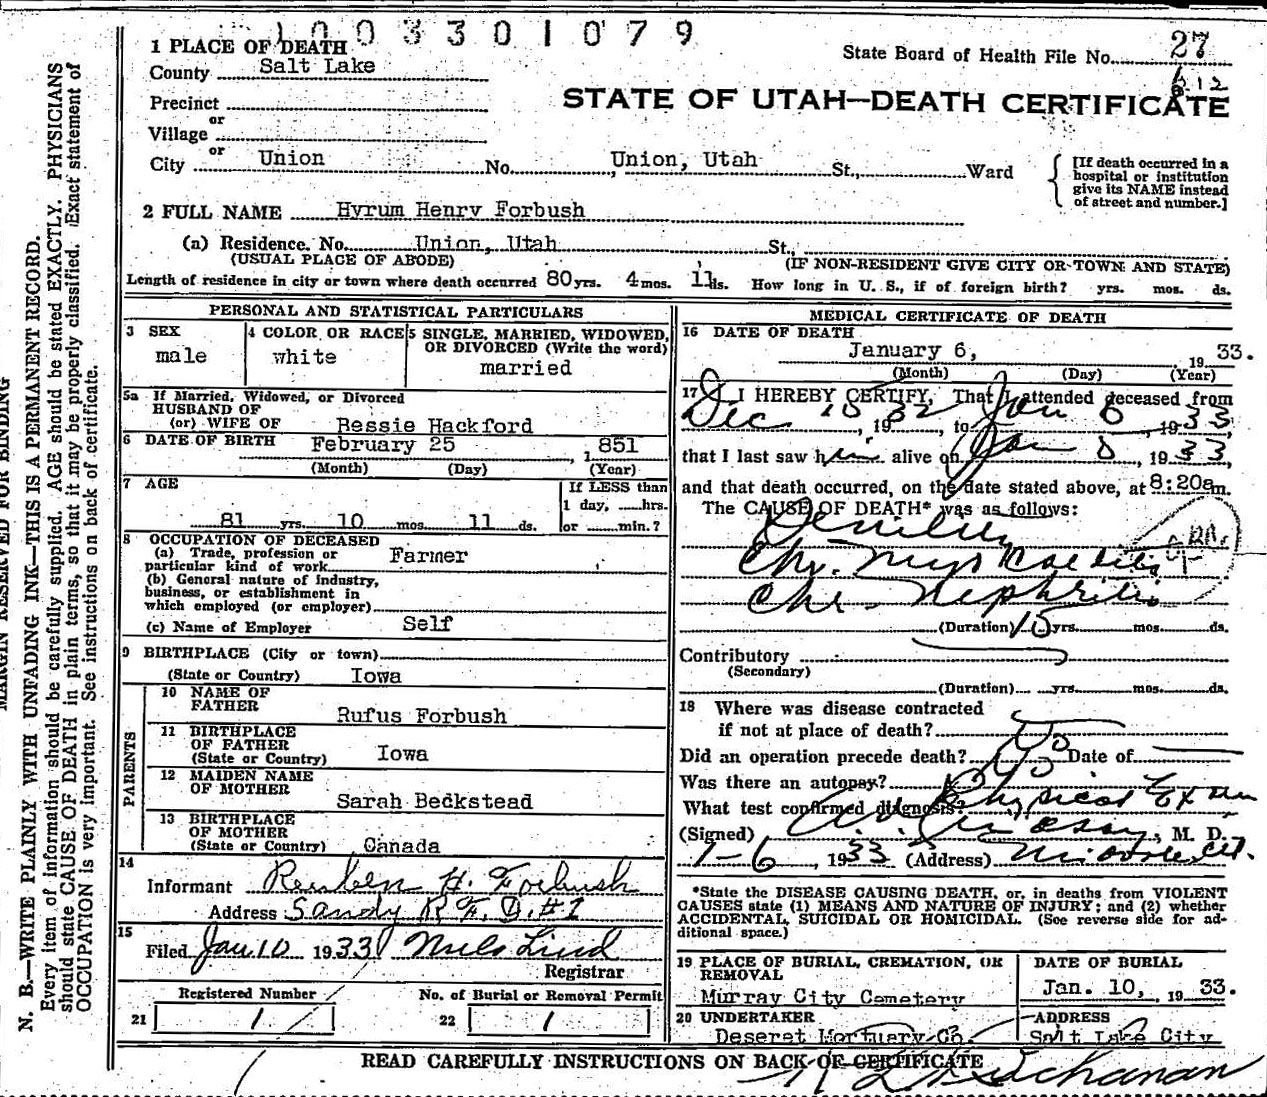 1003301079
1 PLACE OF DEATH
State Board of Health File No. 27
County Salt Lake
612
STATE OF UTAH—DEATH CERTIFICATE
Precinct
or
Village
or
City Union No. Union, Utah St., Ward
[If death occurred in a
hospital or institution
give its NAME instead
of street and number.]
2 FULL NAME Hyrum Henry Forbush
(a) Residence. No. Union, Utah St.,
(USUAL PLACE OF ABODE) (IF NON-RESIDENT GIVE CITY OR TOWN AND STATE)
Length of residence in city or town where death occurred 80 yrs. 4 mos. 11 ds. How long in U. S., if of foreign birth? yrs. mos. ds.
PERSONAL AND STATISTICAL PARTICULARS
3 SEX
male
4 COLOR OR RACE
white
5 SINGLE, MARRIED, WIDOWED,
OR DIVORCED (Write the word)
married
5a If Married, Widowed, or Divorced
HUSBAND OF
(or) WIFE OF Bessie Hackford
6 DATE OF BIRTH February 25, 1851
(Month) (Day) (Year)
7 AGE
81 yrs. 10 mos. 11 ds.
If LESS than
1 day, hrs.
or min.?
8 OCCUPATION OF DECEASED
(a) Trade, profession or
particular kind of work Farmer
(b) General nature of industry,
business, or establishment in
which employed (or employer)
(c) Name of Employer Self
9 BIRTHPLACE (City or town)
(State or Country) Iowa
PARENTS
10 NAME OF
FATHER
Rufus Forbush
11 BIRTHPLACE
OF FATHER
(State or Country) Iowa
12 MAIDEN NAME
OF MOTHER
Sarah Beckstead
13 BIRTHPLACE
OF MOTHER
(State or Country) Canada
14
Informant Reuben H. Forbush
Address Sandy R.F.D.#1
15
Filed Jan. 10 1933 Nils Lind
Registrar
Registered Number
21 1
No. of Burial or Removal Permit
22 1
MEDICAL CERTIFICATE OF DEATH
16 DATE OF DEATH
January 6, 1933.
(Month) (Day) (Year)
17 I HEREBY CERTIFY, That I attended deceased from
Dec 15 1932, to Jan 6, 1933
that I last saw him alive on Jan, 1933,
and that death occurred, on the date stated above, at 8:20am.
The CAUSE OF DEATH* was as follows:
Senility
Chr. Myocarditis
Chr. Nephritis
(Duration) 15 yrs. mos. ds.
Contributory
(Secondary)
(Duration) yrs. mos. ds.
18 Where was disease contracted
if not at place of death?
Did an operation precede death? No Date of
Was there an autopsy? No
What test confirmed diagnosis? Physical Exam
(Signed) M. D.
1-6, 1933 (Address) Midvale Ut.
*State the DISEASE CAUSING DEATH, or, in deaths from VIOLENT
CAUSES state (1) MEANS AND NATURE OF INJURY; and (2) whether
ACCIDENTAL, SUICIDAL OR HOMICIDAL. (See reverse side for ad-
ditional space.)
19 PLACE OF BURIAL, CREMATION, OR
REMOVAL
Murray City Cemetery
DATE OF BURIAL
Jan. 10, 1933.
20 UNDERTAKER
Deseret Mortuary Co.
ADDRESS
Salt Lake City
READ CAREFULLY INSTRUCTIONS ON BACK OF CERTIFICATE
Buchanan
MARGIN RESERVED FOR BINDING
N. B.—WRITE PLAINLY WITH UNFADING INK—THIS IS A PERMANENT RECORD.
Every item of information should be carefully supplied. AGE should be stated EXACTLY. PHYSICIANS
should state CAUSE OF DEATH in plain terms, so that it may be properly classified. Exact statement of
OCCUPATION is very important. See instructions on back of certificate.